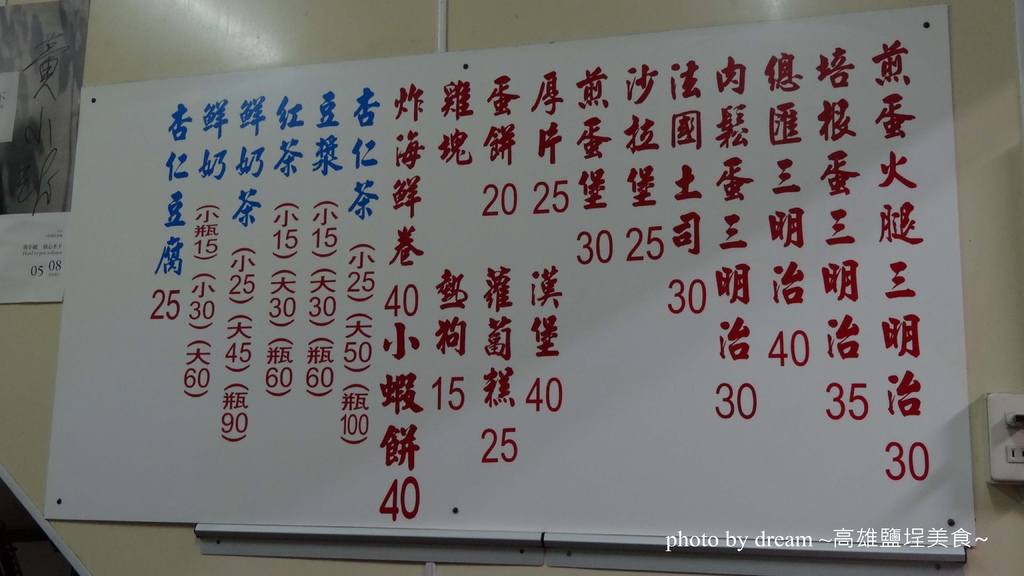 煎蛋火腿三明治 30
培根蛋三明治 35
總匯三明治 40
肉鬆蛋三明治 30
法國土司 30
沙拉堡 25
煎蛋堡 30
厚片 25
漢堡 40
蛋餅 20
蘿蔔糕 25
雞塊
熱狗 15
炸海鮮卷 40
小蝦餅 40
杏仁茶(小25)(大50)(瓶100)
豆漿(小15)(大30)(瓶60)
紅茶(小15)(大30)(瓶60)
鮮奶茶(小25)(大45)(瓶90)
鮮奶(小瓶15)(小30)(大60)
杏仁豆腐 25
05 08
photo by dream ~高雄鹽埕美食~